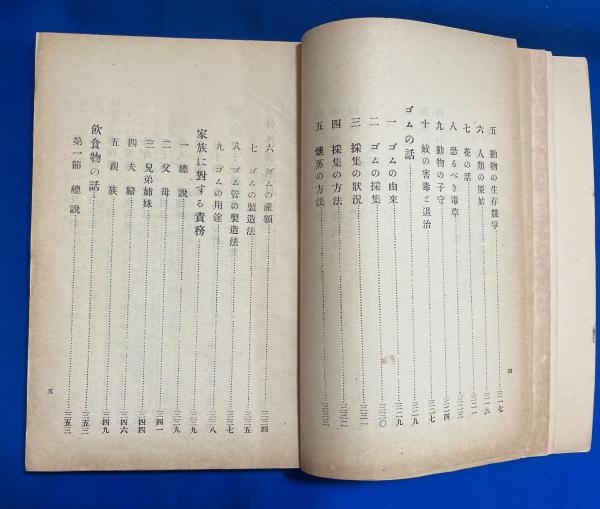 五 動物の生存競爭……三一七
六 人類の原始……三一九
七 花の話……三二一
八 恐るべき毒草……三二三
九 動物の子守……三二四
十 蚊の害毒と退治……三二七
ゴムの話……三二九
一 ゴムの由來……三二九
二 ゴムの採集……三三〇
三 採集の狀況……三三一
四 採集の方法……三三二
五 燻蒸の方法……三三三
四
六 ゴムの產額……三三四
七 ゴムの製造法……三三五
八 ゴム管の製造法……三三七
九 ゴムの用途……三三八
家族に對する責務……三三九
一 總說……三三九
二 父母……三四一
三 兄弟姉妹……三四四
四 夫婦……三四六
五 親族……三四九
飮食物の話……三五三
第一節 總說……三五三
五